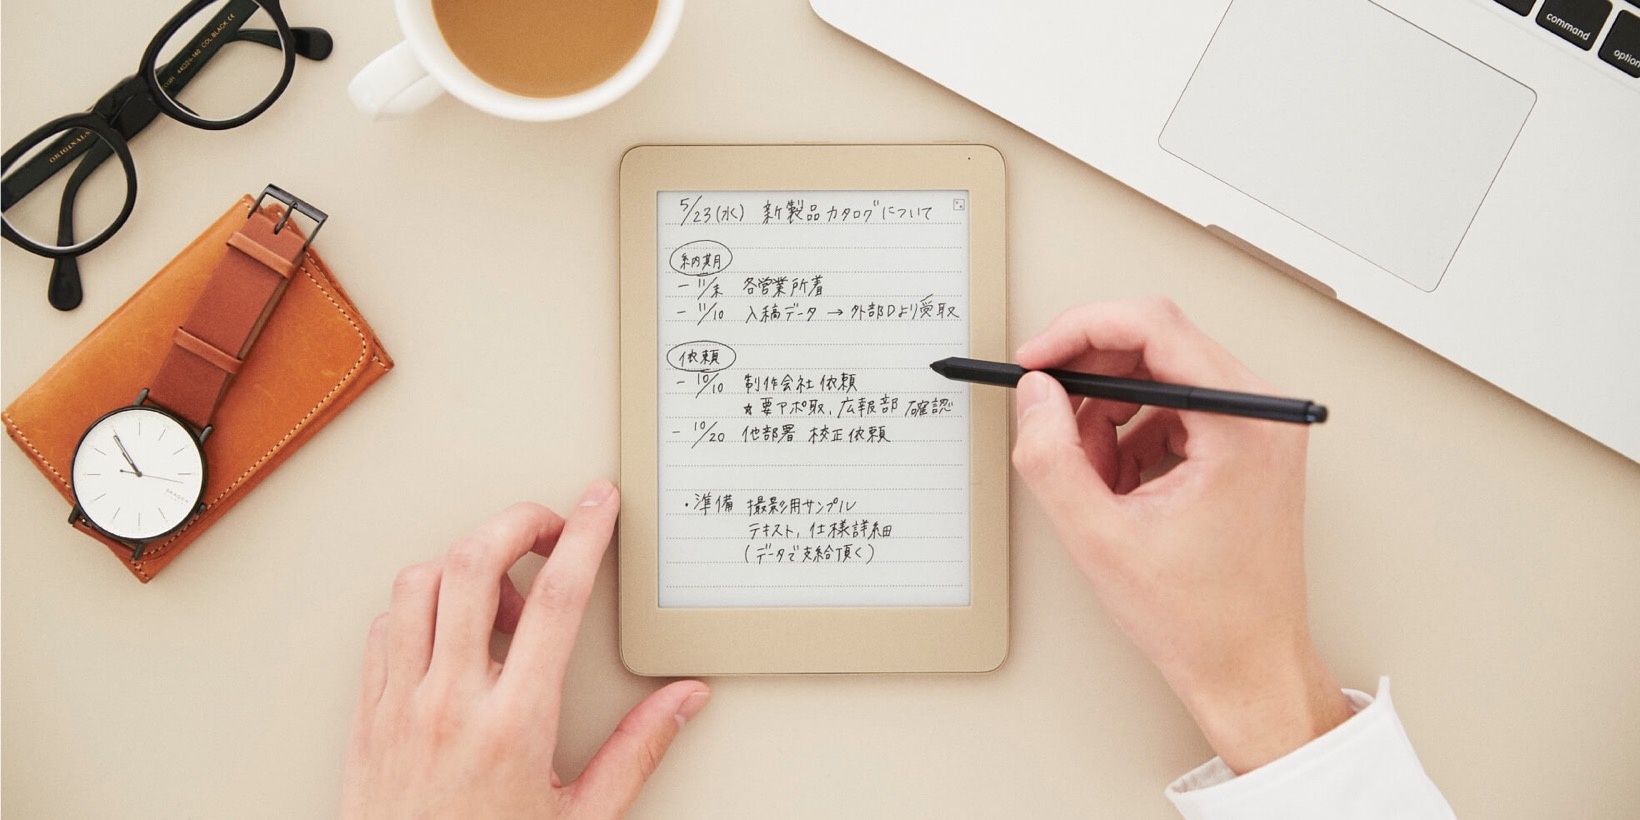 5/23(水) 新製品カタログについて
納期
- 11/末 各営業所着
- 11/10 入稿データ → 外部Dより受取
依頼
- 10/10 制作会社依頼
☆要アポ取、広報部 確認
- 10/20 他部署 校正依頼
・準備 撮影用サンプル
テキスト、仕様詳細
(データで支給頂く)
command
option
COL BLACK CE
ORIGINAL